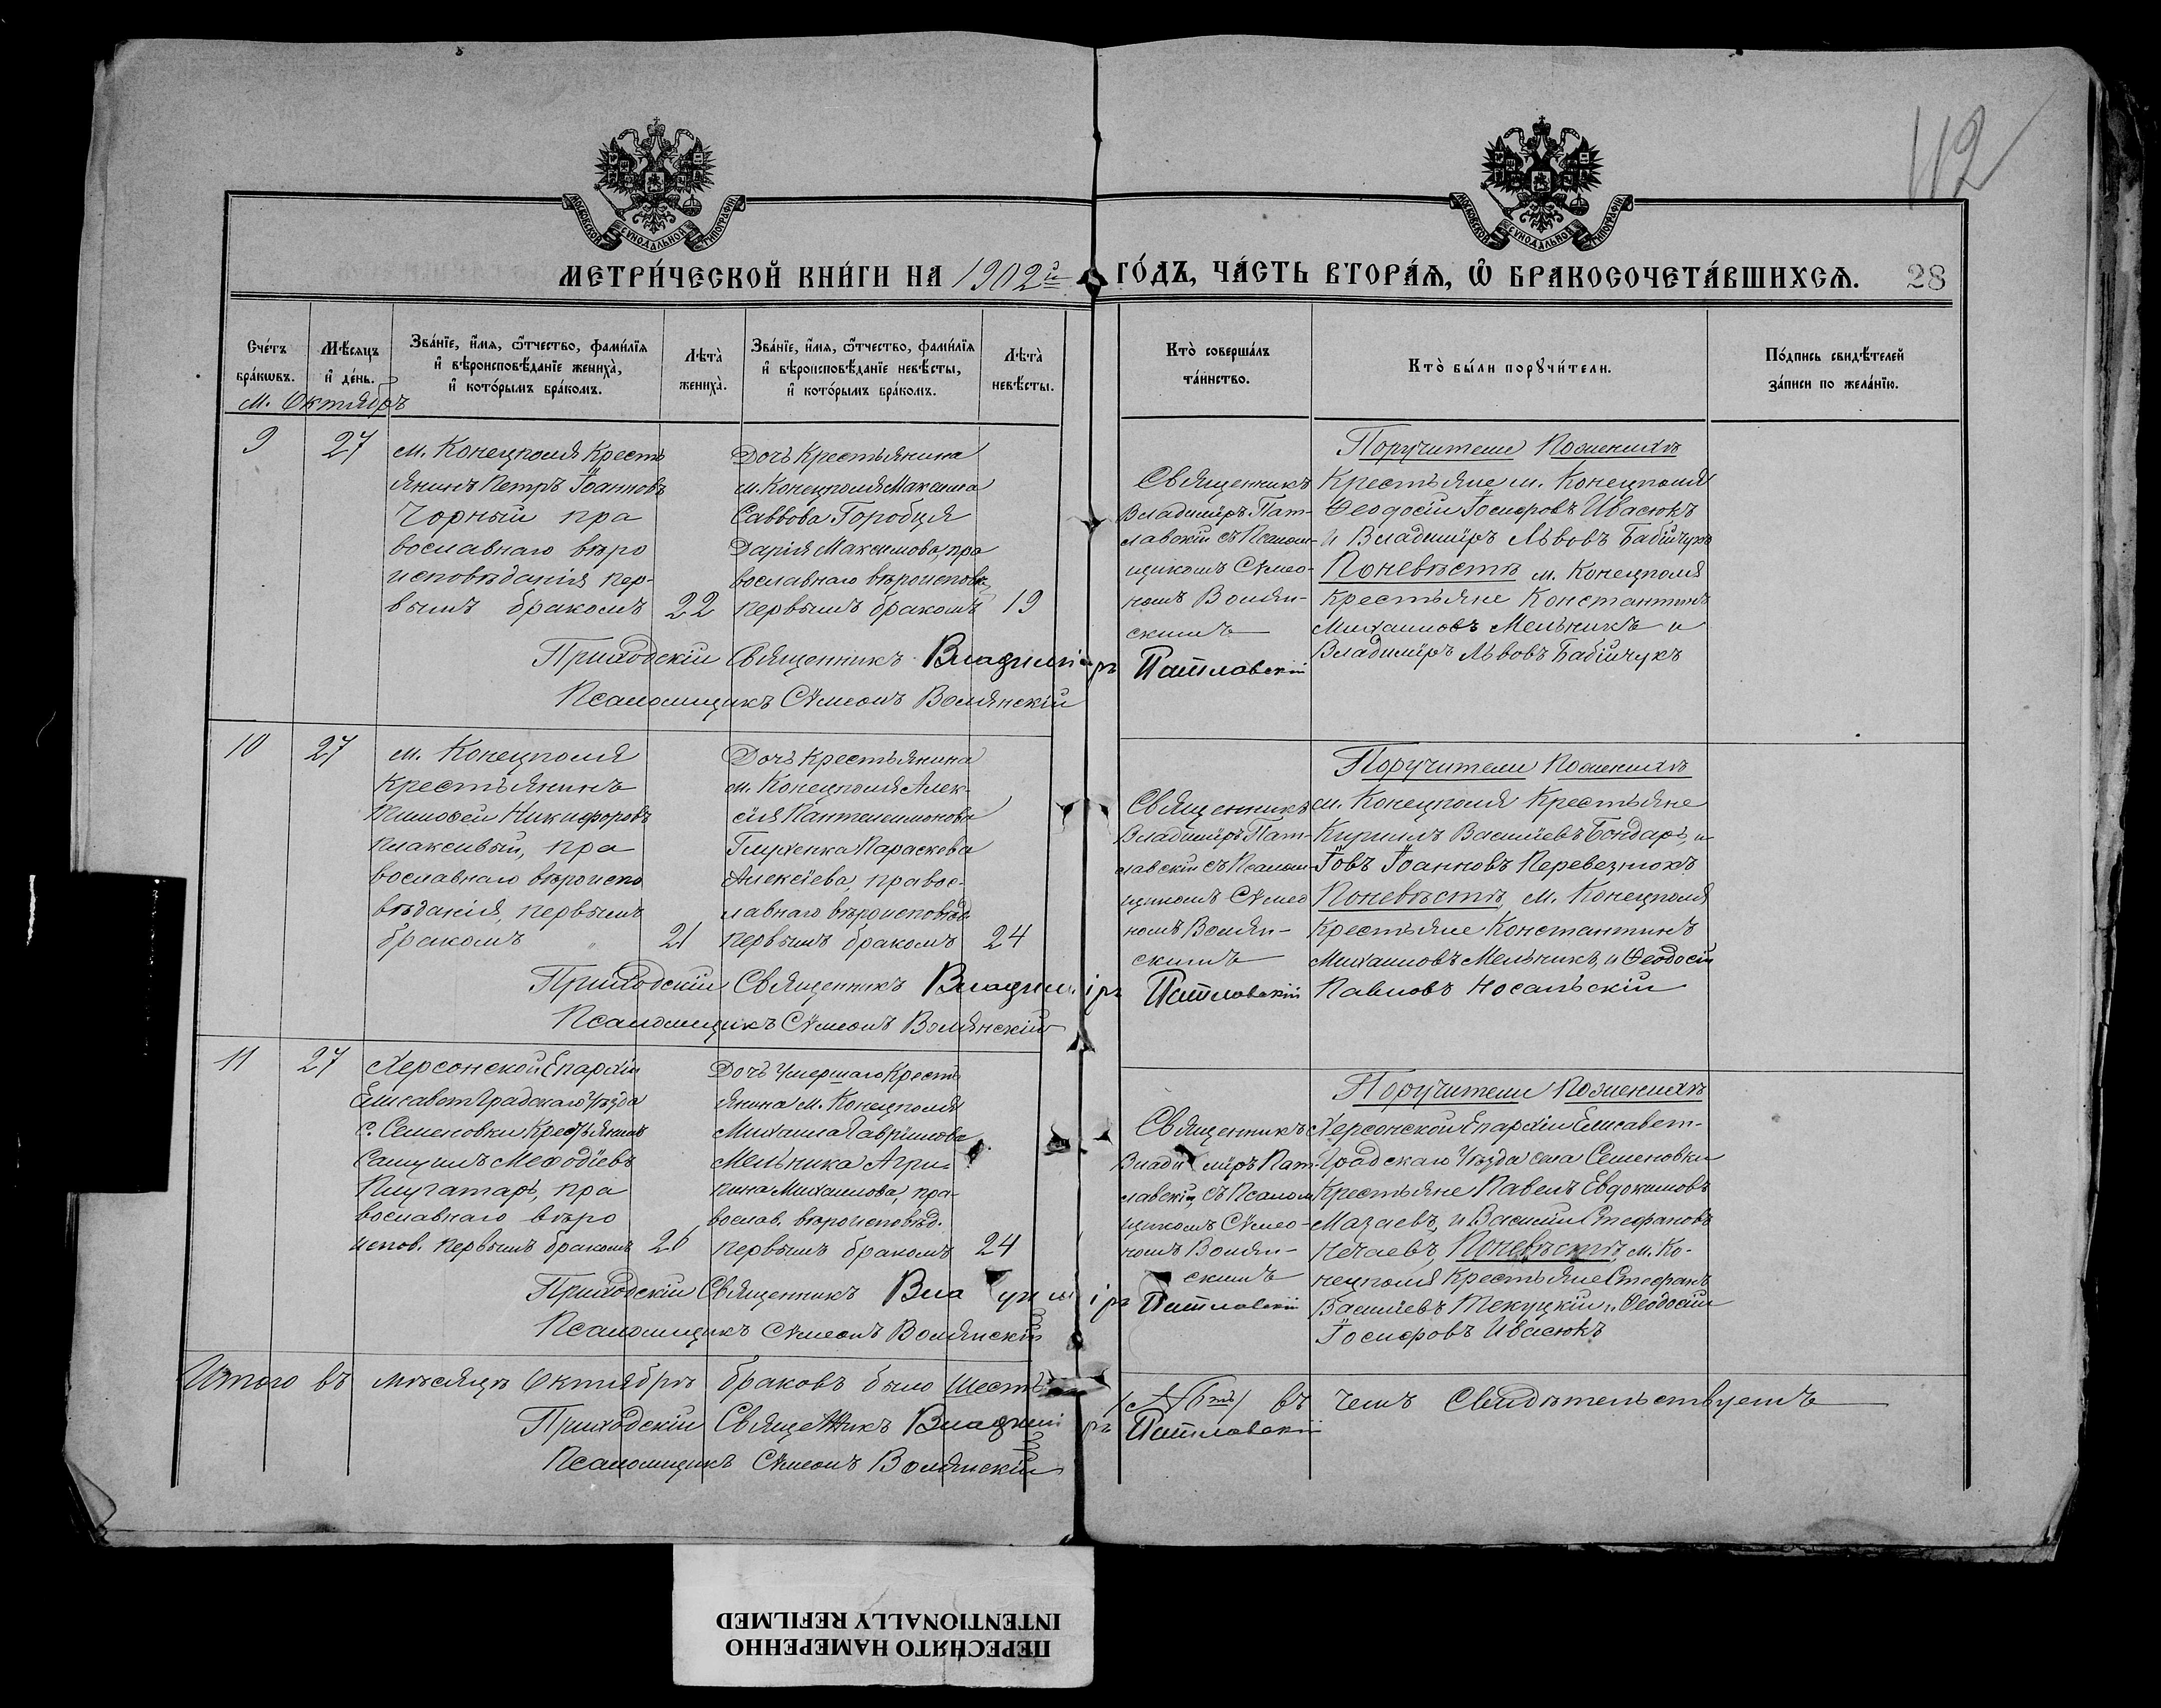 112
МЕТРИ́ЧЕСКОЙ КНИ́ГИ НА 1902й
ГО́ДЪ, ЧА́СТЬ ВТОРА́Я, Ѡ БРАКОСОЧЕТА́ВШИХСЯ.
28
Сче́тъ бра́кѡвъ.
Мѣ́сяцъ и де́нь.
Зва́нїе, и́мя, ѻ҆́тчество, фами́лїя и вѣроисповѣ́данїе жениха̀, и кото́рымъ бра́комъ.
Лѣта̀ жениха̀.
Зва́нїе, и́мя, ѻ҆́тчество, фами́лїя и вѣроисповѣ́данїе невѣ́сты, и кото́рымъ бра́комъ.
Лѣта̀ невѣ́сты.
Кто̀ соверша́лъ та́инство.
Кто̀ бы́ли порꙋчи́тели.
По́дпись свидѣ́телей за́писи по жела́нїю.
м. Октябръ
9
27
м. Конецполя Кресть
янинъ Петръ Іоанновъ
Чорный пра
вославнаго вѣро
исповѣданія пер-
вымъ бракомъ
22
Дочь Крестьянина
м. Конецполя Максима
Саввова Горобця
Дарія Максимова, пра
вославнаго вѣроисповѣд.
первымъ бракомъ
19
Священникъ
Владиміръ Пат-
лавскій съ Псалом-
щикомъ Сѵмео-
номъ Волян-
скимъ
Поручители по женихѣ
Крестьяне м. Конецполя
Ѳеодосій Іосифовъ Ивасюкъ
и Владиміръ Львовъ Бабійчукъ
По невѣстѣ м. Конецполя
Крестьяне Константинъ
Михаиловъ Мельникъ и
Владиміръ Львовъ Бабійчукъ
Приходскій Священникъ Владиміръ Патлавскій
Псаломщикъ Сѵмеонъ Волянскій
10
27
м. Конецполя
Крестьянинъ
Тимоѳей Никифоровъ
Плаксивый, пра
вославнаго вѣроиспо
вѣданія, первымъ
бракомъ
21
Дочь Крестьянина
м. Конецполя Алек-
сія Пантелеимонова
Глущенка Параскева
Алексіева, правос-
лавнаго вѣроисповѣд.
первымъ бракомъ
24
Священникъ
Владиміръ Пат-
лавскій съ Псалом-
щикомъ Сѵмео
номъ Волян-
скимъ
Поручители по женихѣ
м. Конецполя Крестьяне
Кириллъ Василіевъ Бондарь, и
Іовъ Іоанновъ Перевезнюкъ
По невѣстѣ, м. Конецполя
Крестьяне Константинъ
Михаиловъ Мельникъ, и Ѳеодосій
Павловъ Носальскій
Приходскій Священникъ Владиміръ Патлавскій
Псаломщикъ Сѵмеонъ Волянскій
11
27
Херсонской Епархіи
Елисаветградскаго Уѣзда
с. Семеновки Крестьянинъ
Самуилъ Меѳодіевъ
Плугатарь, пра
вославнаго вѣро
испов. первымъ бракомъ
26
Дочь Умершаго Кресть
янина м. Конецполя
Михаила Гавріилова
Мельника Агри-
пина Михаилова, пра-
вослав. вѣроисповѣд.
первымъ бракомъ
24
Священникъ
Владиміръ Пат-
лавскій, съ Псалом
щикомъ Сѵмео-
номъ Волян-
скимъ
Поручители по женихѣ
Херсонской Епархіи Елисавет-
градскаго Уѣзда села Семеновки
Крестьяне Павелъ Евдокимовъ
Мазаевъ, и Василій Стефановъ
Нечаевъ, По невѣстѣ, м. Ко-
нецполя Крестьяне Стефанъ
Василіевъ Текуцкій и Ѳеодосій
Іосифовъ Ивасюкъ
Приходскій Священникъ Владиміръ Патлавскій
Псаломщикъ Сѵмеонъ Волянскій
Итого въ мѣсяцѣ Октябрѣ браковъ было шесть въ чемъ Свидѣтельствуемъ
Приходскій Священникъ Владиміръ Патлавскій
Псаломщикъ Сѵмеонъ Волянскій
ПЕРЕСНЯТО НАМЕРЕННО
INTENTIONALLY REFILMED